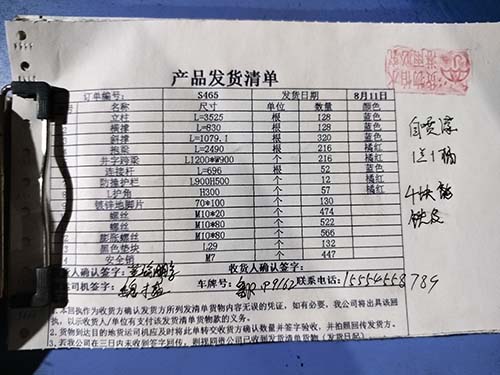 产品发货清单
订单编号: S465 发货日期 8月11日
名称 尺寸 单位 数量 颜色
立柱 L=3525 根 128 蓝色
横撑 L=830 根 128 蓝色
斜撑 L=1079.1 根 320 蓝色
抱梁 L=2490 根 216 橘红
井字跨梁 L1200*W900 个 216 橘红
连接杆 L=696 根 52 蓝色
防撞护栏 L900H500 个 12 橘红
L护角 H300 个 57 橘红
镀锌地脚片 70*100 个 130
螺丝 M10*20 个 474
螺丝 M10*80 个 522
膨胀螺丝 M10*80 个 566
黑色垫块 L29 个 132
安全销 M7 个 447
货人确认签字: 收货人确认签字:
运司机签字: 车牌号: 联系电话: 15554558789
1.本回执作为收货方确认发货方所列发清单货物内容无误的凭证, 如有必要, 我公司将出具该回
执, 以示收货人/单位有支付该发货清单货物款的义务。
2.货物到达目的地货运司机应及时将此单转交收货方确认数量并签字验收, 并拍照回传发货方。
3.若我公司在三日内未收到签字回传, 则视同贵公司已收到发货清单货物 (发货日记)